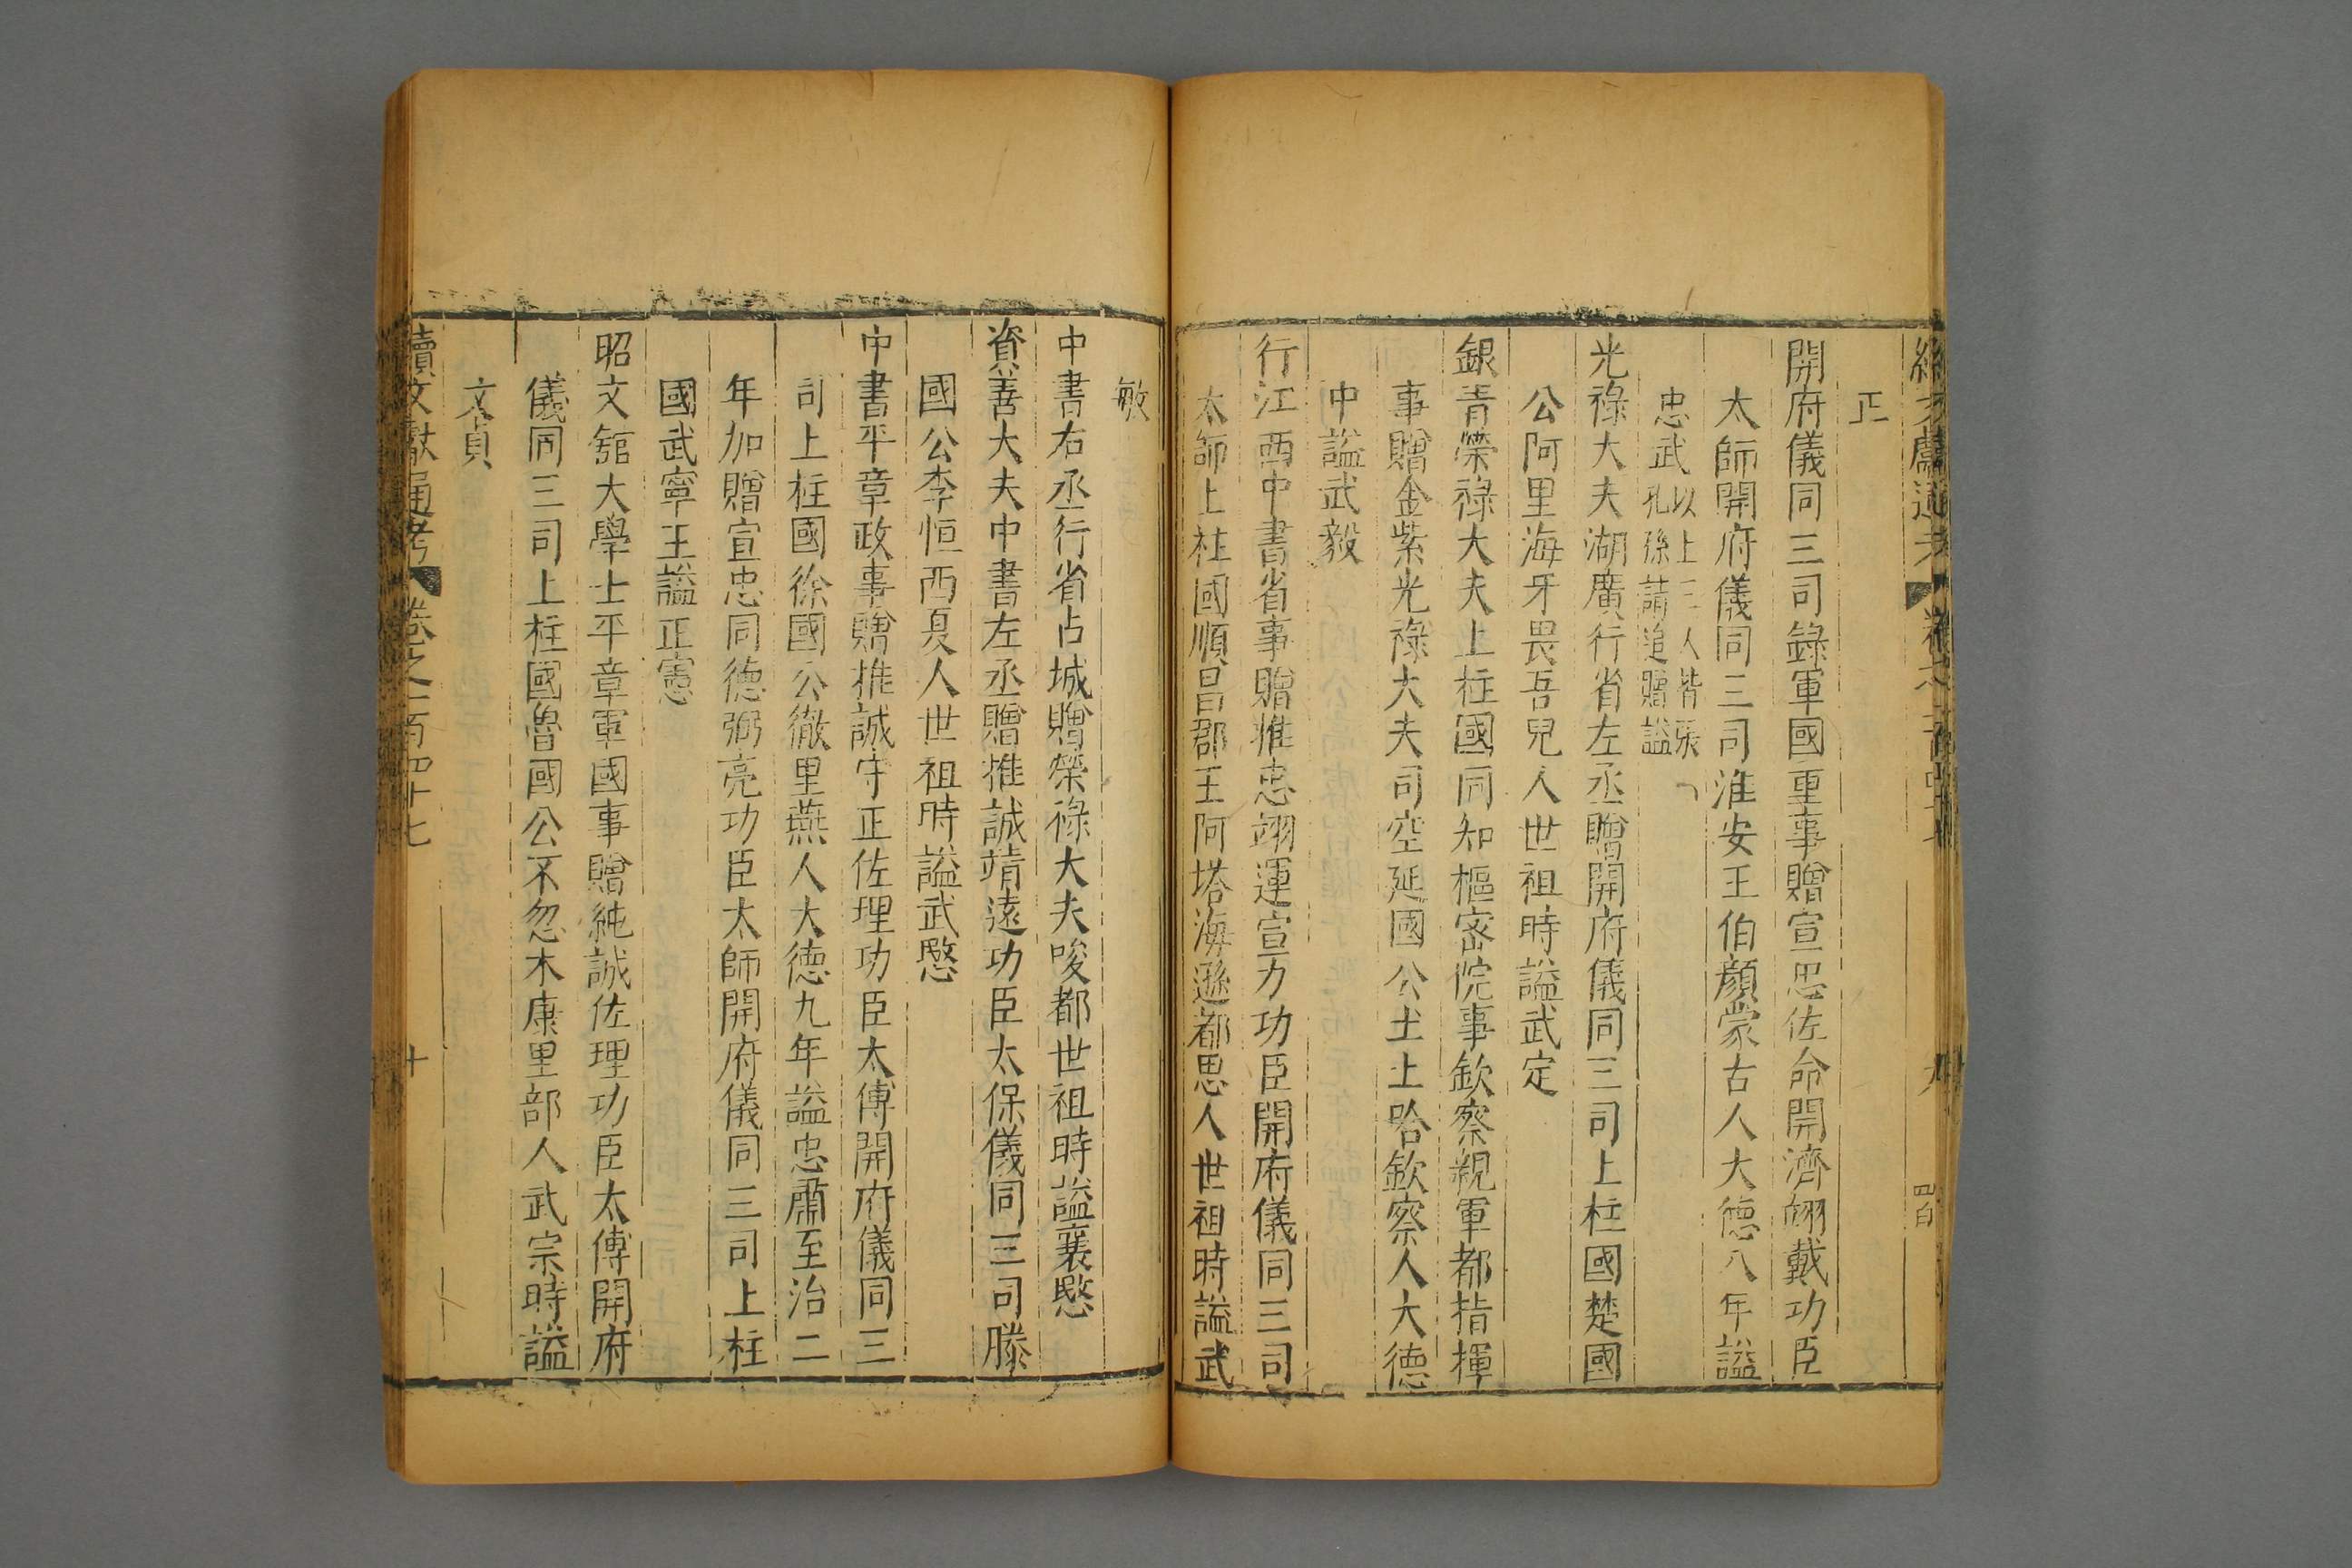 正
開府儀同三司錄軍國重事贈宣忠佐命開濟翊戴功臣
太師開府儀同三司淮安王伯顏蒙古人大德八年諡
忠武以上三人皆張
孔孫請追贈諡
光祿大夫湖廣行省左丞贈開府儀同三司上柱國楚國
公阿里海牙畏吾兒人世祖時諡武定
銀青榮祿大夫上柱國同知樞密院事欽察親軍都指揮
事贈金紫光祿大夫司空延國公土土哈欽察人大德
中諡武毅
行江西中書省事贈推忠翊運宣力功臣開府儀同三司
太師上柱國順昌郡王阿塔海遜都思人世祖時諡武
敏
中書右丞行省占城贈榮祿大夫唆都世祖時諡襄愍
資善大夫中書左丞贈推誠靖遠功臣太保儀同三司滕
國公李恒西夏人世祖時諡武愍
中書平章政事贈推誠守正佐理功臣太傅開府儀同三
司上柱國徐國公徹里燕人大德九年諡忠肅至治二
年加贈宣忠同德弼亮功臣太師開府儀同三司上柱
國武寧王諡正憲
昭文舘大學士平章軍國事贈純誠佐理功臣太傅開府
儀同三司上柱國魯國公不忽木康里部人武宗時諡
文貞
續文獻通考 卷之一百四十七 十